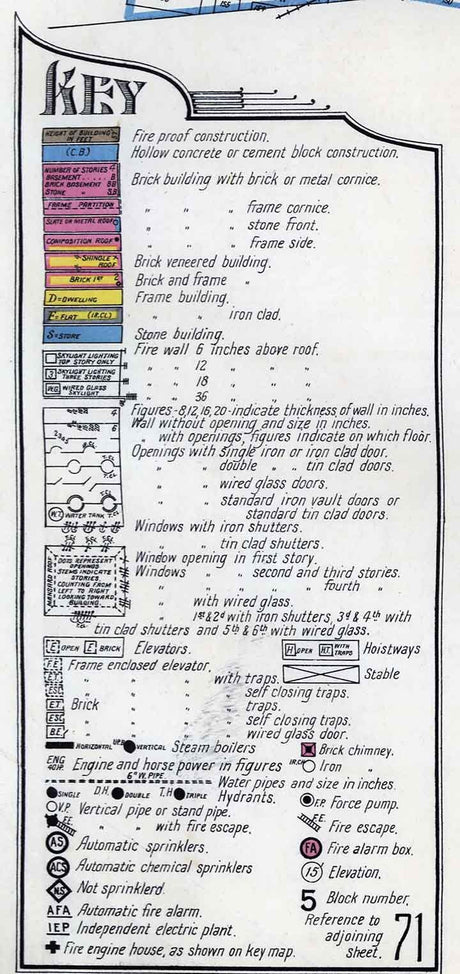 155
154
KEY
HEIGHT OF BUILDING IN FEET Fire proof construction.
(C.B.) Hollow concrete or cement block construction.
NUMBER OF STORIES 4
BASEMENT . . . . B
BRICK BASEMENT BB
STONE " SB
Brick building with brick or metal cornice.
FRAME PARTITION " " " frame cornice.
SLATE OR METAL ROOF " " " stone front.
COMPOSITION ROOF " " " frame side.
SHINGLE ROOF X Brick veneered building.
BRICK 1ST 2 Brick and frame "
D=DWELLING Frame building.
F=FLAT (IR.CL.) " " iron clad.
S=STORE Stone building.
SKYLIGHT LIGHTING TOP STORY ONLY Fire wall 6 inches above roof.
3 SKYLIGHT LIGHTING THREE STORIES " " 12 " " "
" " 18 " " "
WG WIRED GLASS SKYLIGHT " " 36 " " "
4 Figures-8,12,16,20-indicate thickness of wall in inches.
6 Wall without opening and size in inches.
" with openings, figures indicate on which floor.
Openings with single iron or iron clad door.
" " double " " tin clad doors.
" " wired glass doors.
" " standard iron vault doors or
standard tin clad doors.
W.T. WATER TANK T.CL.
Windows with iron shutters.
" " tin clad shutters.
Window opening in first story.
Windows " " second and third stories.
" " " fourth "
" with wired glass.
" 1st & 2d with iron shutters, 3d & 4th with
tin clad shutters and 5th & 6th with wired glass.
MANSARD ROOF
DOTS REPRESENT
OPENINGS
STEMS INDICATE
STORIES
COUNTING FROM
LEFT TO RIGHT
LOOKING TOWARD
BUILDING
E OPEN E BRICK Elevators.
H OPEN HT. WITH TRAPS Hoistways
F.E. Frame enclosed elevator.
Stable
ET " " " with traps.
ESC " " " self closing traps.
ET Brick " " traps.
ESC " " " self closing traps.
B.E. " " " wired glass door.
HORIZONTAL UPR'D VERTICAL Steam boilers
Brick chimney.
ENG 40HP. Engine and horse power in figures
IR.CH. Iron "
6" W. PIPE. Water pipes and size in inches.
SINGLE D.H. DOUBLE T.H. TRIPLE Hydrants.
V.P. Vertical pipe or stand pipe.
F.P. Force pump.
F.E. " " " with fire escape.
F.E. Fire escape.
AS Automatic sprinklers.
FA Fire alarm box.
ACS Automatic chemical sprinklers
15' Elevation.
NS Not sprinklerd.
5 Block number.
AFA Automatic fire alarm.
IEP Independent electric plant.
Fire engine house, as shown on key map.
Reference to
adjoining
sheet. 71